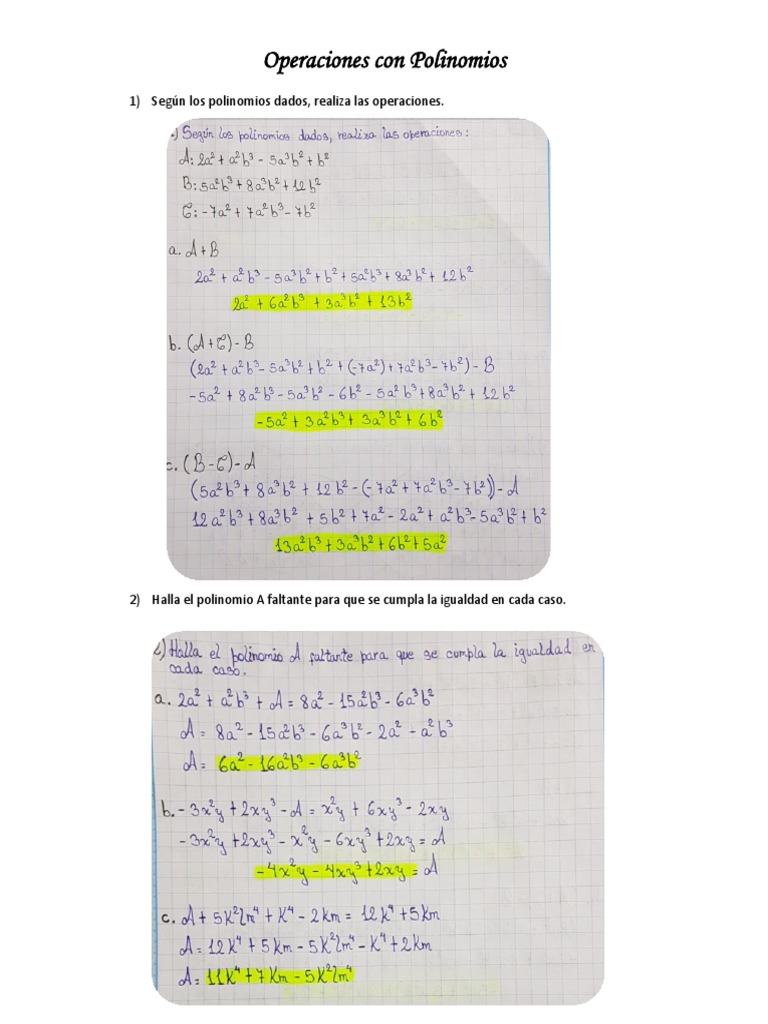 Operaciones con Polinomios
1) Según los polinomios dados, realiza las operaciones.
.) Según los polinomios dados, realiza las operaciones:
A: 2a² + a²b³ - 5a³b² + b²
B: 5a²b³ + 8a³b² + 12b²
C: -7a² + 7a²b³ - 7b²
a. A + B
2a² + a²b³ - 5a³b² + b² + 5a²b³ + 8a³b² + 12b²
2a² + 6a²b³ + 3a³b² + 13b²
b. (A + C) - B
(2a² + a²b³ - 5a³b² + b² + (-7a²) + 7a²b³ - 7b²) - B
-5a² + 8a²b³ - 5a³b² - 6b² - 5a²b³ + 8a³b² + 12b²
-5a² + 3a²b³ + 3a³b² + 6b²
c. (B - C) - A
(5a²b³ + 8a³b² + 12b² - (-7a² + 7a²b³ - 7b²)) - A
12a²b³ + 8a³b² + 5b² + 7a² - 2a² + a²b³ - 5a³b² + b²
13a²b³ + 3a³b² + 6b² + 5a²
2) Halla el polinomio A faltante para que se cumpla la igualdad en cada caso.
2) Halla el polinomio A faltante para que se cumpla la igualdad en
cada caso.
a. 2a² + a²b³ + A = 8a² - 15a²b³ - 6a³b²
A = 8a² - 15a²b³ - 6a³b² - 2a² - a²b³
A = 6a² - 16a²b³ - 6a³b²
b. -3x²y + 2xy³ - A = x²y + 6xy³ - 2xy
-3x²y + 2xy³ - x²y - 6xy³ + 2xy = A
-4x²y - 4xy³ + 2xy = A
c. A + 5k²lm⁴ + k⁴ - 2km = 12k⁴ + 5km
A = 12k⁴ + 5km - 5k²lm⁴ - k⁴ + 2km
A = 11k⁴ + 7km - 5k²lm⁴